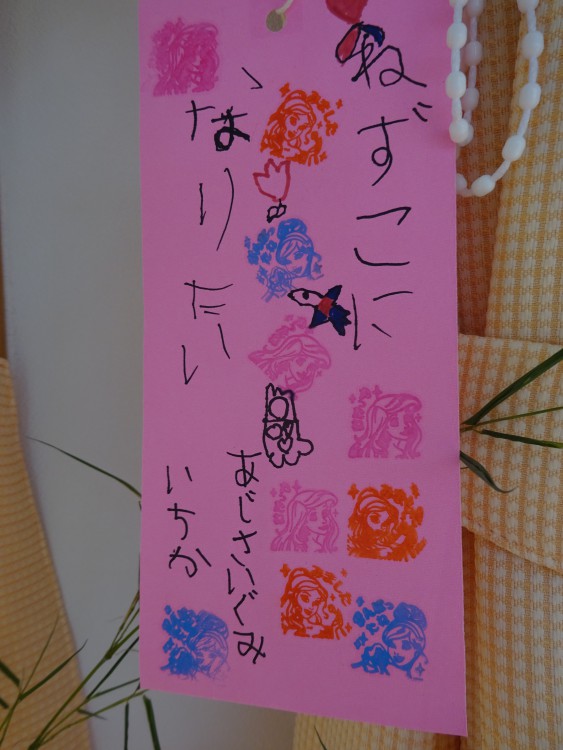 ねずこに
なりたい
あじさいぐみ
いちか